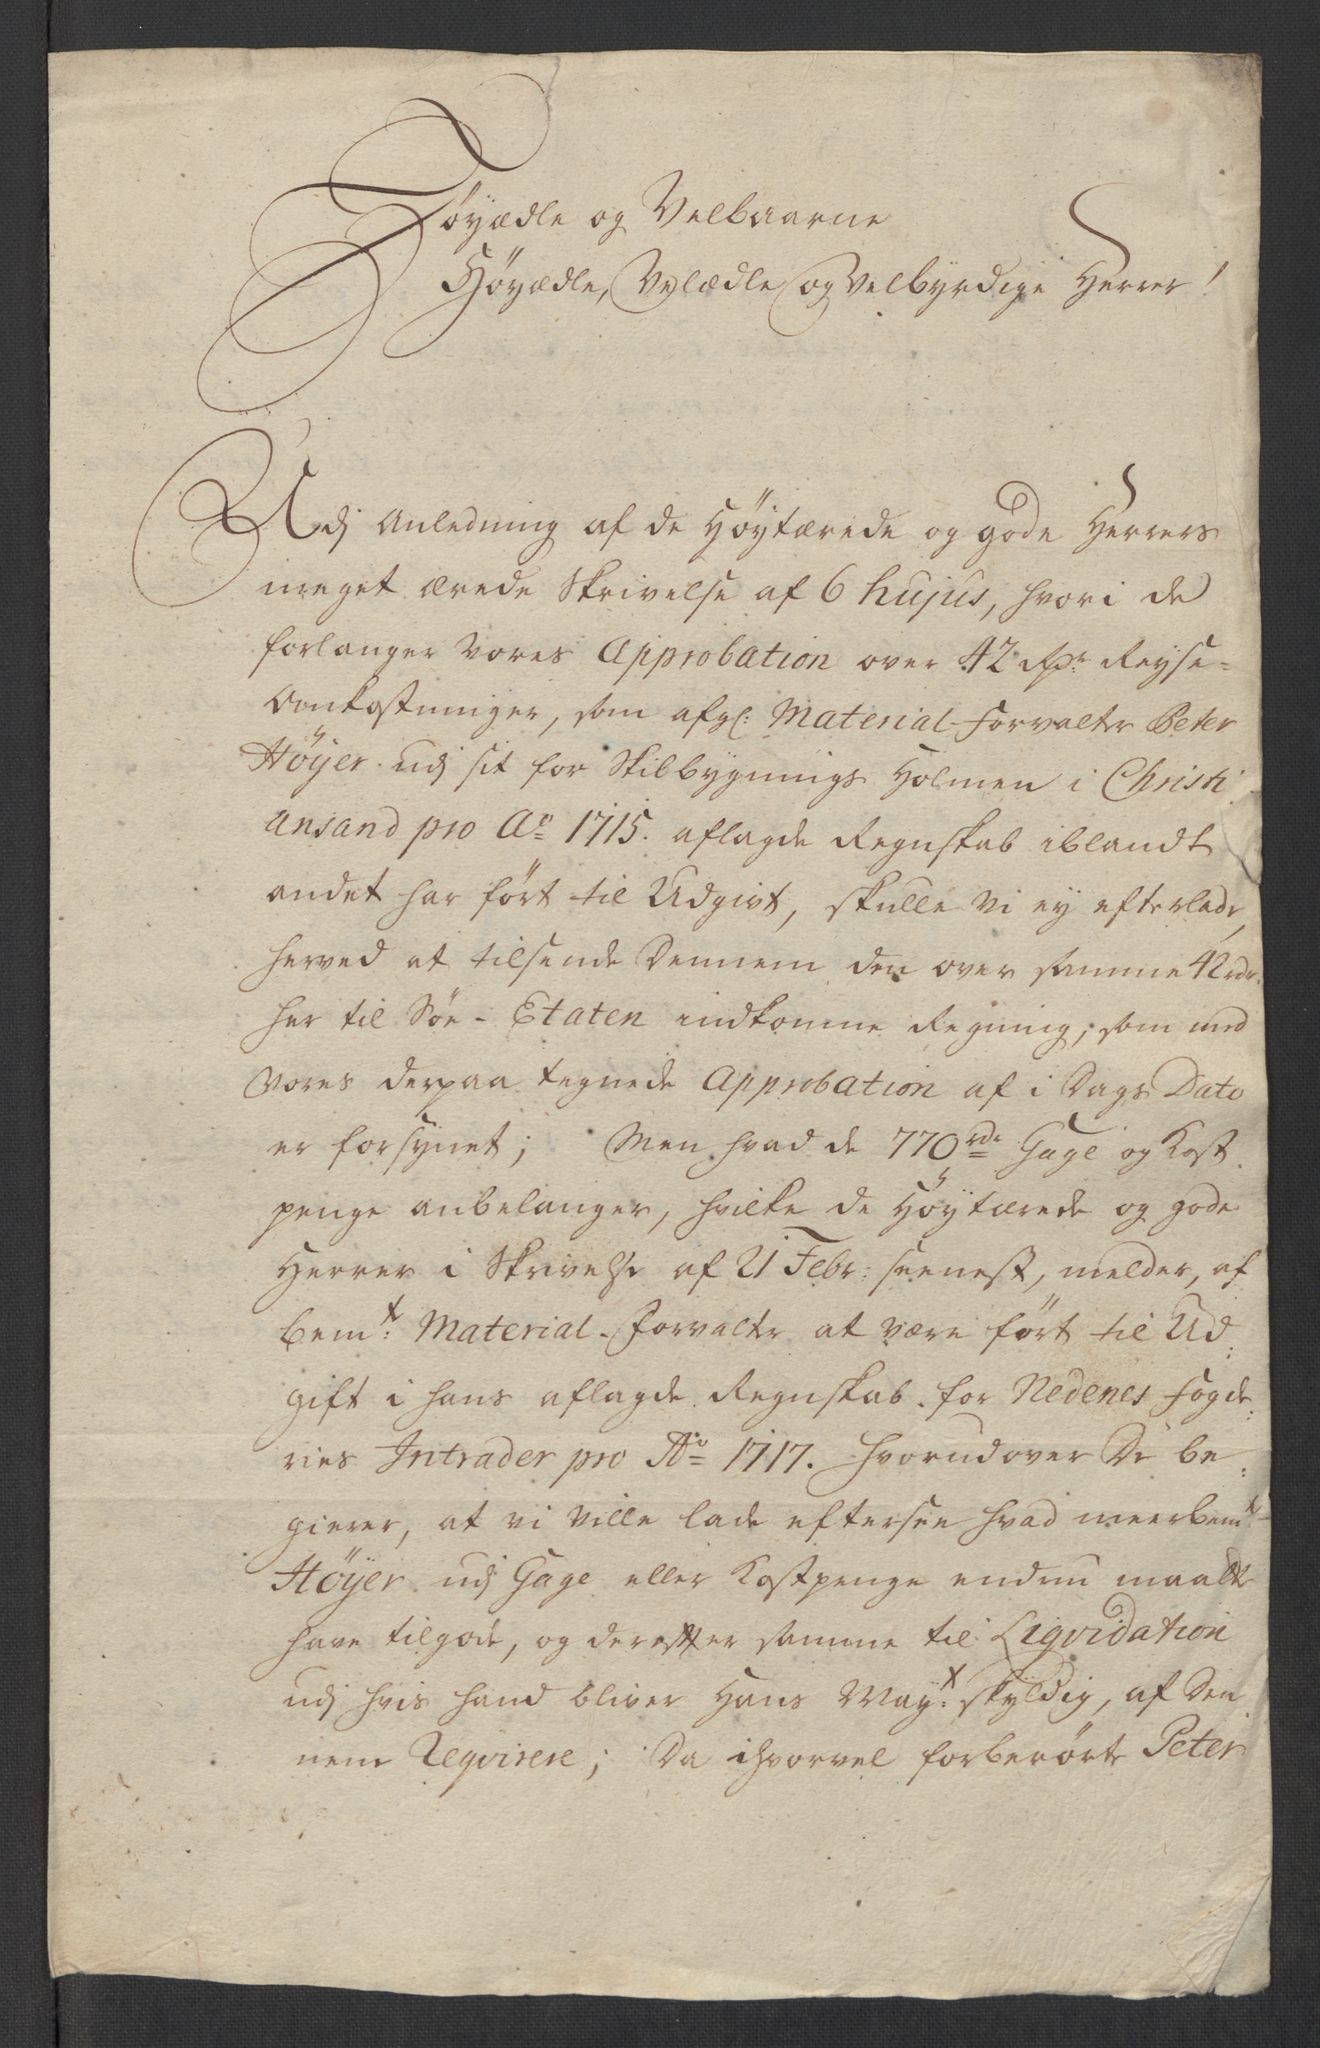 Høyædle og Velbaarne
Høyædle, Velædle og Velbyrdige Herrer!
Udj Anledning af de Høytærede og gode Herrers
meget ærede Skrivelse af 6 hujus, hvori de
forlanger vores Approbation over 42 Rdr Reyse-
Omkostninger, som afgl: Material-Forvalter Peter
Höyer udj sit for Skibbygnings Holmen i Christi
ansand pro Ao 1715. aflagde Regnskab iblandt
andet har ført til Udgivt, skulle vi ey efterlade,
herved at tilsende Dennem den over samme 42 rdr.
her til Söe-Etaten indkomne Regning, som med
vores derpaa tegnede Approbation af i Dags Dato
er forsynet; Men hvad de 770 rdr Gage og Kost
penge anbelanger, hvilke de Høytærede og gode
Herrer i Skrivelse af 21 Febr: seenest, melder, af
bemt: Material-Forvalter at være ført til Ud:
gift i hans aflagde Regnskab for Nedenes Fogde:
ries Intrader pro Ao 1717. hvorudover De be:
gierer, at vi ville lade eftersee hvad meerbemt
Höyer udj Gage eller Kostpenge endnu maatte
have tilgode, og derefter samme til Liqvidation
udj hvis hand bliver Hans Mayt: skyldig, af Den
nem Reqvirere; Da ihvorvel forberørte Peter